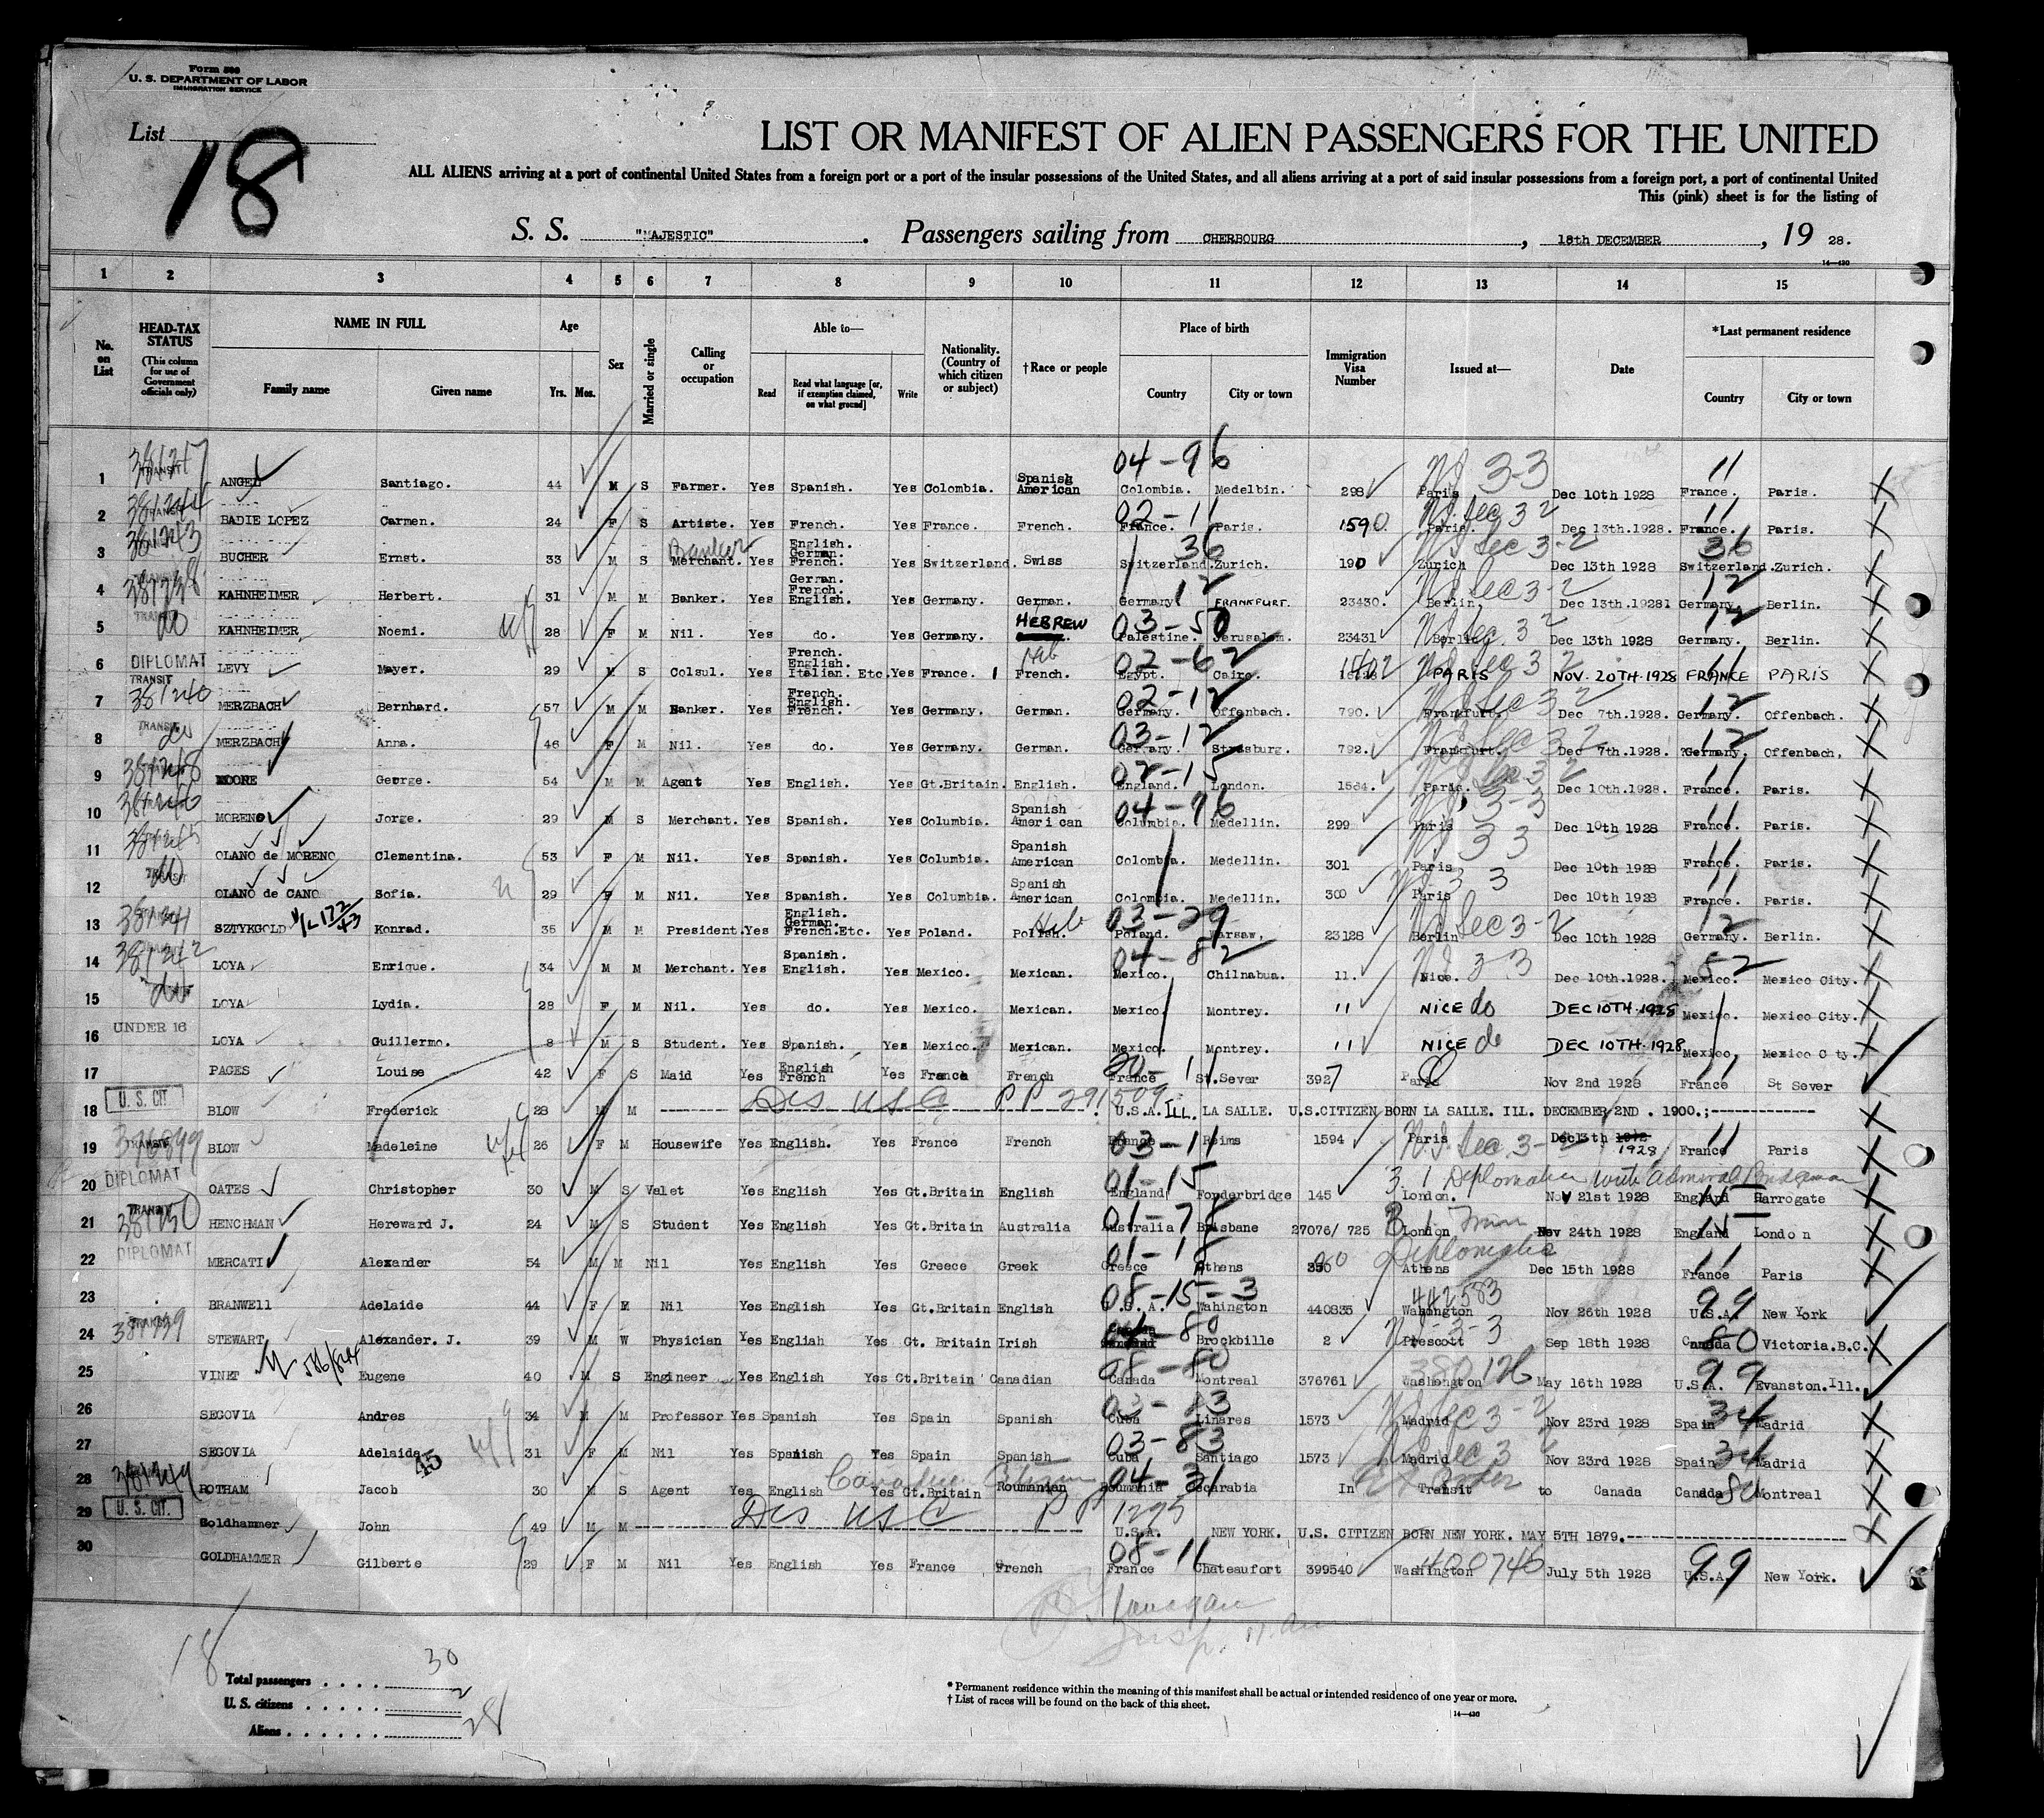 Form 500
U. S. DEPARTMENT OF LABOR
IMMIGRATION SERVICE
List 18
LIST OR MANIFEST OF ALIEN PASSENGERS FOR THE UNITED
ALL ALIENS arriving at a port of continental United States from a foreign port or a port of the insular possessions of the United States, and all aliens arriving at a port of said insular possessions from a foreign port, a port of continental United
This (pink) sheet is for the listing of
S. S. "MAJESTIC" . Passengers sailing from CHERBOURG , 18th DECEMBER , 19 28.
14—430
1 2 3 4 5 6 7 8 9 10 11 12 13 14 15
No. on List
HEAD-TAX STATUS (This column for use of Government officials only)
NAME IN FULL
Family name Given name
Age
Yrs. Mos.
Sex
Married or single
Calling or occupation
Able to—
Read Read what language [or, if exemption claimed, on what ground] Write
Nationality. (Country of which citizen or subject)
†Race or people
Place of birth
Country City or town
Immigration Visa Number
Issued at—
Date
*Last permanent residence
Country City or town
1 TRANSIT ANGEL Santiago. 44 M S Farmer. Yes Spanish. Yes Colombia. Spanish American 04-96 Colombia. Medelbin. 298 Paris 3-3 Dec 10th 1928 11 France. Paris.
2 BADIE LOPEZ Carmen. 24 F S Artiste. Yes French. Yes France. French. 02-11 France. Paris. 1590. Paris. Dec 13th.1928. 11 France. Paris.
3 BUCHER Ernst. 33 M S Banker Merchant. Yes English. German. French. Yes Switzerland. Swiss 36 Switzerland. Zurich. 190 Zurich Dec 13th 1928 36 Switzerland. Zurich.
4 KAHNHEIMER Herbert. 31 M M Banker. Yes German. French. English. Yes Germany. German. 12 Germany FRANKFURT. 23430. Berlin, Dec 13th.1928 12 Germany. Berlin.
5 TRANSIT do KAHNHEIMER Noemi. 28 F M Nil. Yes do. Yes Germany. HEBREW 03-50 Palestine. Jerusalem. 23431 Berlin, Dec 13th 1928 12 Germany. Berlin.
6 DIPLOMAT LEVY Mayer. 29 M S Colsul. Yes French. English. Italian. Etc. Yes France. Heb French. 02-62 Egypt. Cairo. PARIS NOV. 20TH.1928 11 FRANCE PARIS
7 TRANSIT 381240 MERZBACH Bernhard. 57 M M Banker. Yes French. English. French. Yes Germany. German. 02-12 Germany. Offenbach. 790. Frankfurt. Dec 7th.1928. 12 Germany. Offenbach.
8 TRANSIT do MERZBACH Anna. 46 F M Nil. Yes do. Yes Germany. German. 03-12 Germany. Strasburg. 792. Frankfurt. Dec 7th.1928. 12 Germany. Offenbach,
9 381248 MOORE George. 54 M M Agent Yes English. Yes Gt.Britain. English. 02-15 England. London. 1564. Paris. Dec 10th.1928. 11 France. Paris.
10 MORENO Jorge. 29 M S Merchant. Yes Spanish. Yes Columbia. Spanish American 04-96 Columbia. Medellin. 299 Paris 3-3 Dec 10th 1928 11 France. Paris.
11 OLANO de MORENO Clementina. 53 F M Nil. Yes Spanish. Yes Columbia. Spanish American Colombia. Medellin. 301 Paris 3 3 Dec 10th 1928 11 France. Paris.
12 TRANSIT do OLANO de CANO Sofia. 29 F M Nil. Yes Spanish. Yes Columbia. Spanish American Colombia. Medellin. 300 Paris 3 3 Dec 10th 1928 11 France. Paris.
13 381241 SZTYKGOLD Konrad. 35 M M President. Yes English. German. French.Etc. Yes Poland. Polish. Heb 03-29 Poland. Warsaw, 23128 Berlin Dec 10th 1928 12 Germany. Berlin.
14 381242 LOYA Enrique. 34 M M Merchant. Yes Spanish. English. Yes Mexico. Mexican. 04-82 Mexico. Chilnabua. 11. Nice. 3 3 Dec 10th.1928. 82 Mexico. Mexico City.
15 do LOYA Lydia. 28 F M Nil. Yes do. Yes Mexico. Mexican. Mexico. Montrey. 11 NICE do DEC 10TH.1928 Mexico. Mexico City.
16 UNDER 16 LOYA Guillermo. 8 M S Student. Yes Spanish. Yes Mexico. Mexican. Mexico. Montrey. 11 NICE do DEC 10TH.1928 Mexico. Mexico C ty.
17 PAGES Louise 42 F S Maid Yes English French Yes France French France St.Sever 3927 Paris Nov 2nd 1928 France St Sever
18 U. S. CIT. BLOW Frederick 28 M M Dis USC PP 291509 U.S.A. ILL. LA SALLE. U.S.CITIZEN BORN LA SALLE. ILL. DECEMBER 2ND . 1900.;
19 TRANSIT BLOW Madeleine 26 F M Housewife Yes English. Yes France French 03-11 France Reims 1594 Paris Sec 3-2 Dec13th 1912 1928 11 France Paris
20 DIPLOMAT OATES Christopher 30 M S Valet Yes English Yes Gt.Britain English 01-15 England Fonderbridge 145 3.1 Diplomatic with Admiral Bridgeman London. Nov 21st 1928 15 England Harrogate
21 TRANSIT HENCHMAN Hereward J. 24 M S Student Yes English Yes Gt.Britain Australia 01-78 Australia Brisbane 27076/ 725 London Nov 24th 1928 15 England London
22 DIPLOMAT MERCATI Alexander 54 M M Nil Yes English Yes Greece Greek 01-18 Greece Athens Diplomatic Athens Dec 15th 1928 11 France Paris
23 BRANWELL Adelaide 44 F M Nil Yes English Yes Gt.Britain English 08-15-3 U.S.A. Wahington 440835 442583 Wahongton Nov 26th 1928 99 U.S.A. New York
24 STEWART Alexander. J. 39 M W Physician Yes English Yes Gt. Britain Irish Brockbille 2 Prescott Sep 18th 1928 80 Canada Victoria.B.C.
25 VINET Eugene 40 M S Engineer Yes English Yes Gt.Britain Canadian 08-80 Canada Montreal 376761 Washington May 16th 1928 99 U.S.A. Evanston.Ill.
26 SEGOVIA Andres 34 M M Professor Yes Spanish Yes Spain Spanish 03-83 Cuba Linares 1573 Madrid Sec 3-2 Nov 23rd 1928 34 Spain Madrid
27 SEGOVIA Adelaida 45 31 F M Nil Yes Spanish Yes Spain Spanish 03-83 Cuba Santiago 1573 Madrid Sec 3 Nov 23rd 1928 34 Spain Madrid
28 ROTHAM Jacob 30 M S Agent Yes English Yes Gt.Britain Roumanian 04-31 Roumania Becarabia In Transit to Canada Canada 80 Montreal
29 U. S. CIT. Goldhammer John 49 M M Dis USC PP 1295 U.S.A. NEW YORK. U.S. CITIZEN BORN NEW YORK. MAY 5TH 1879.
30 GOLDHAMMER Gilberte 29 F M Nil Yes English Yes France French 08-11 France Chateaufort 399540 Washington 400746 July 5th 1928 99 U.S.A. New York.
18
Total passengers . . . . 30
U. S. citizens . . . . . 2
Aliens . . . . . . 28
* Permanent residence within the meaning of this manifest shall be actual or intended residence of one year or more.
† List of races will be found on the back of this sheet.
14—430